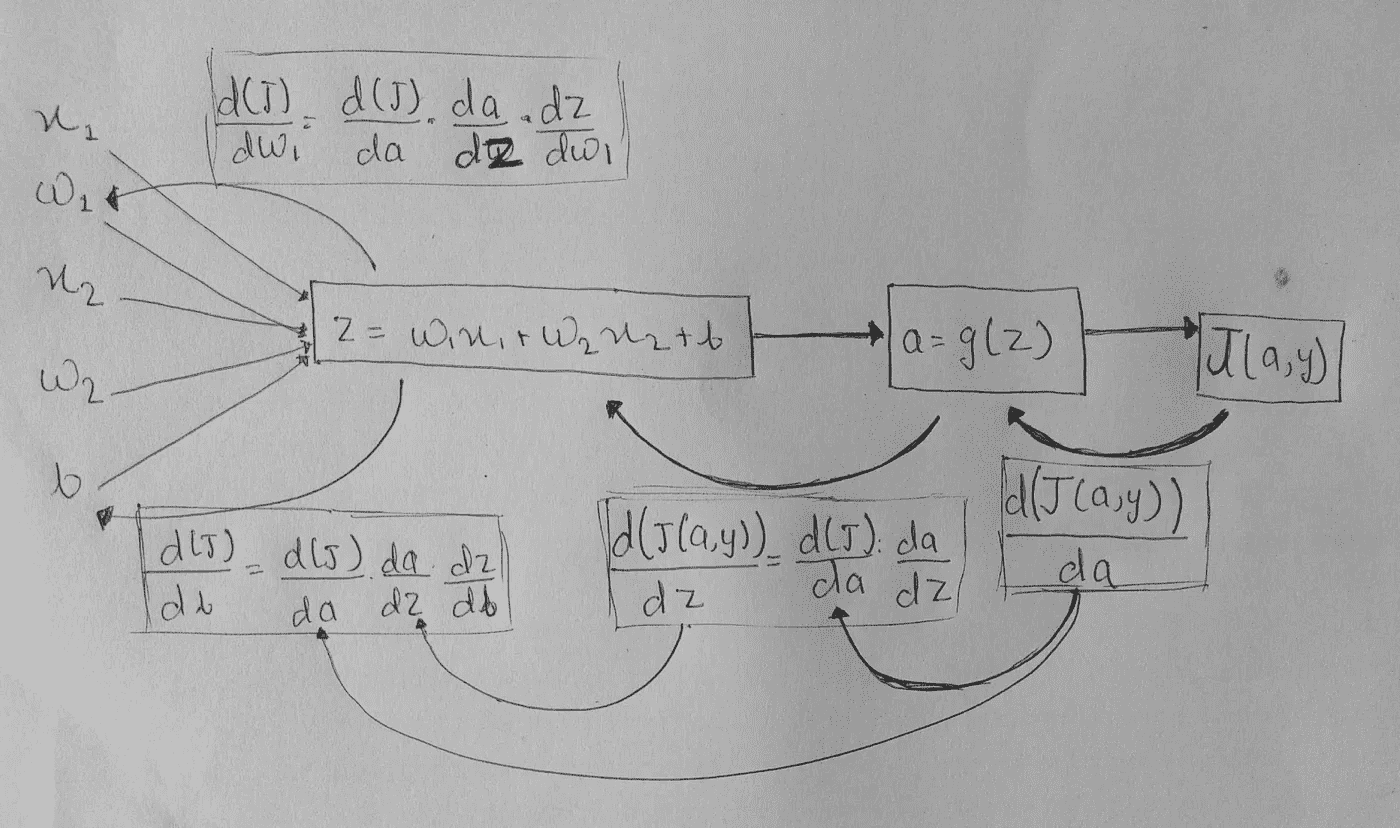 d(J)/dw₁ = d(J)/da · da/dz · dz/dw₁
x₁
w₁
x₂
w₂
b
z = w₁x₁ + w₂x₂ + b
a = g(z)
J(a,y)
d(J)/db = d(J)/da · da/dz · dz/db
d(J(a,y))/dz = d(J)/da · da/dz
d(J(a,y))/da